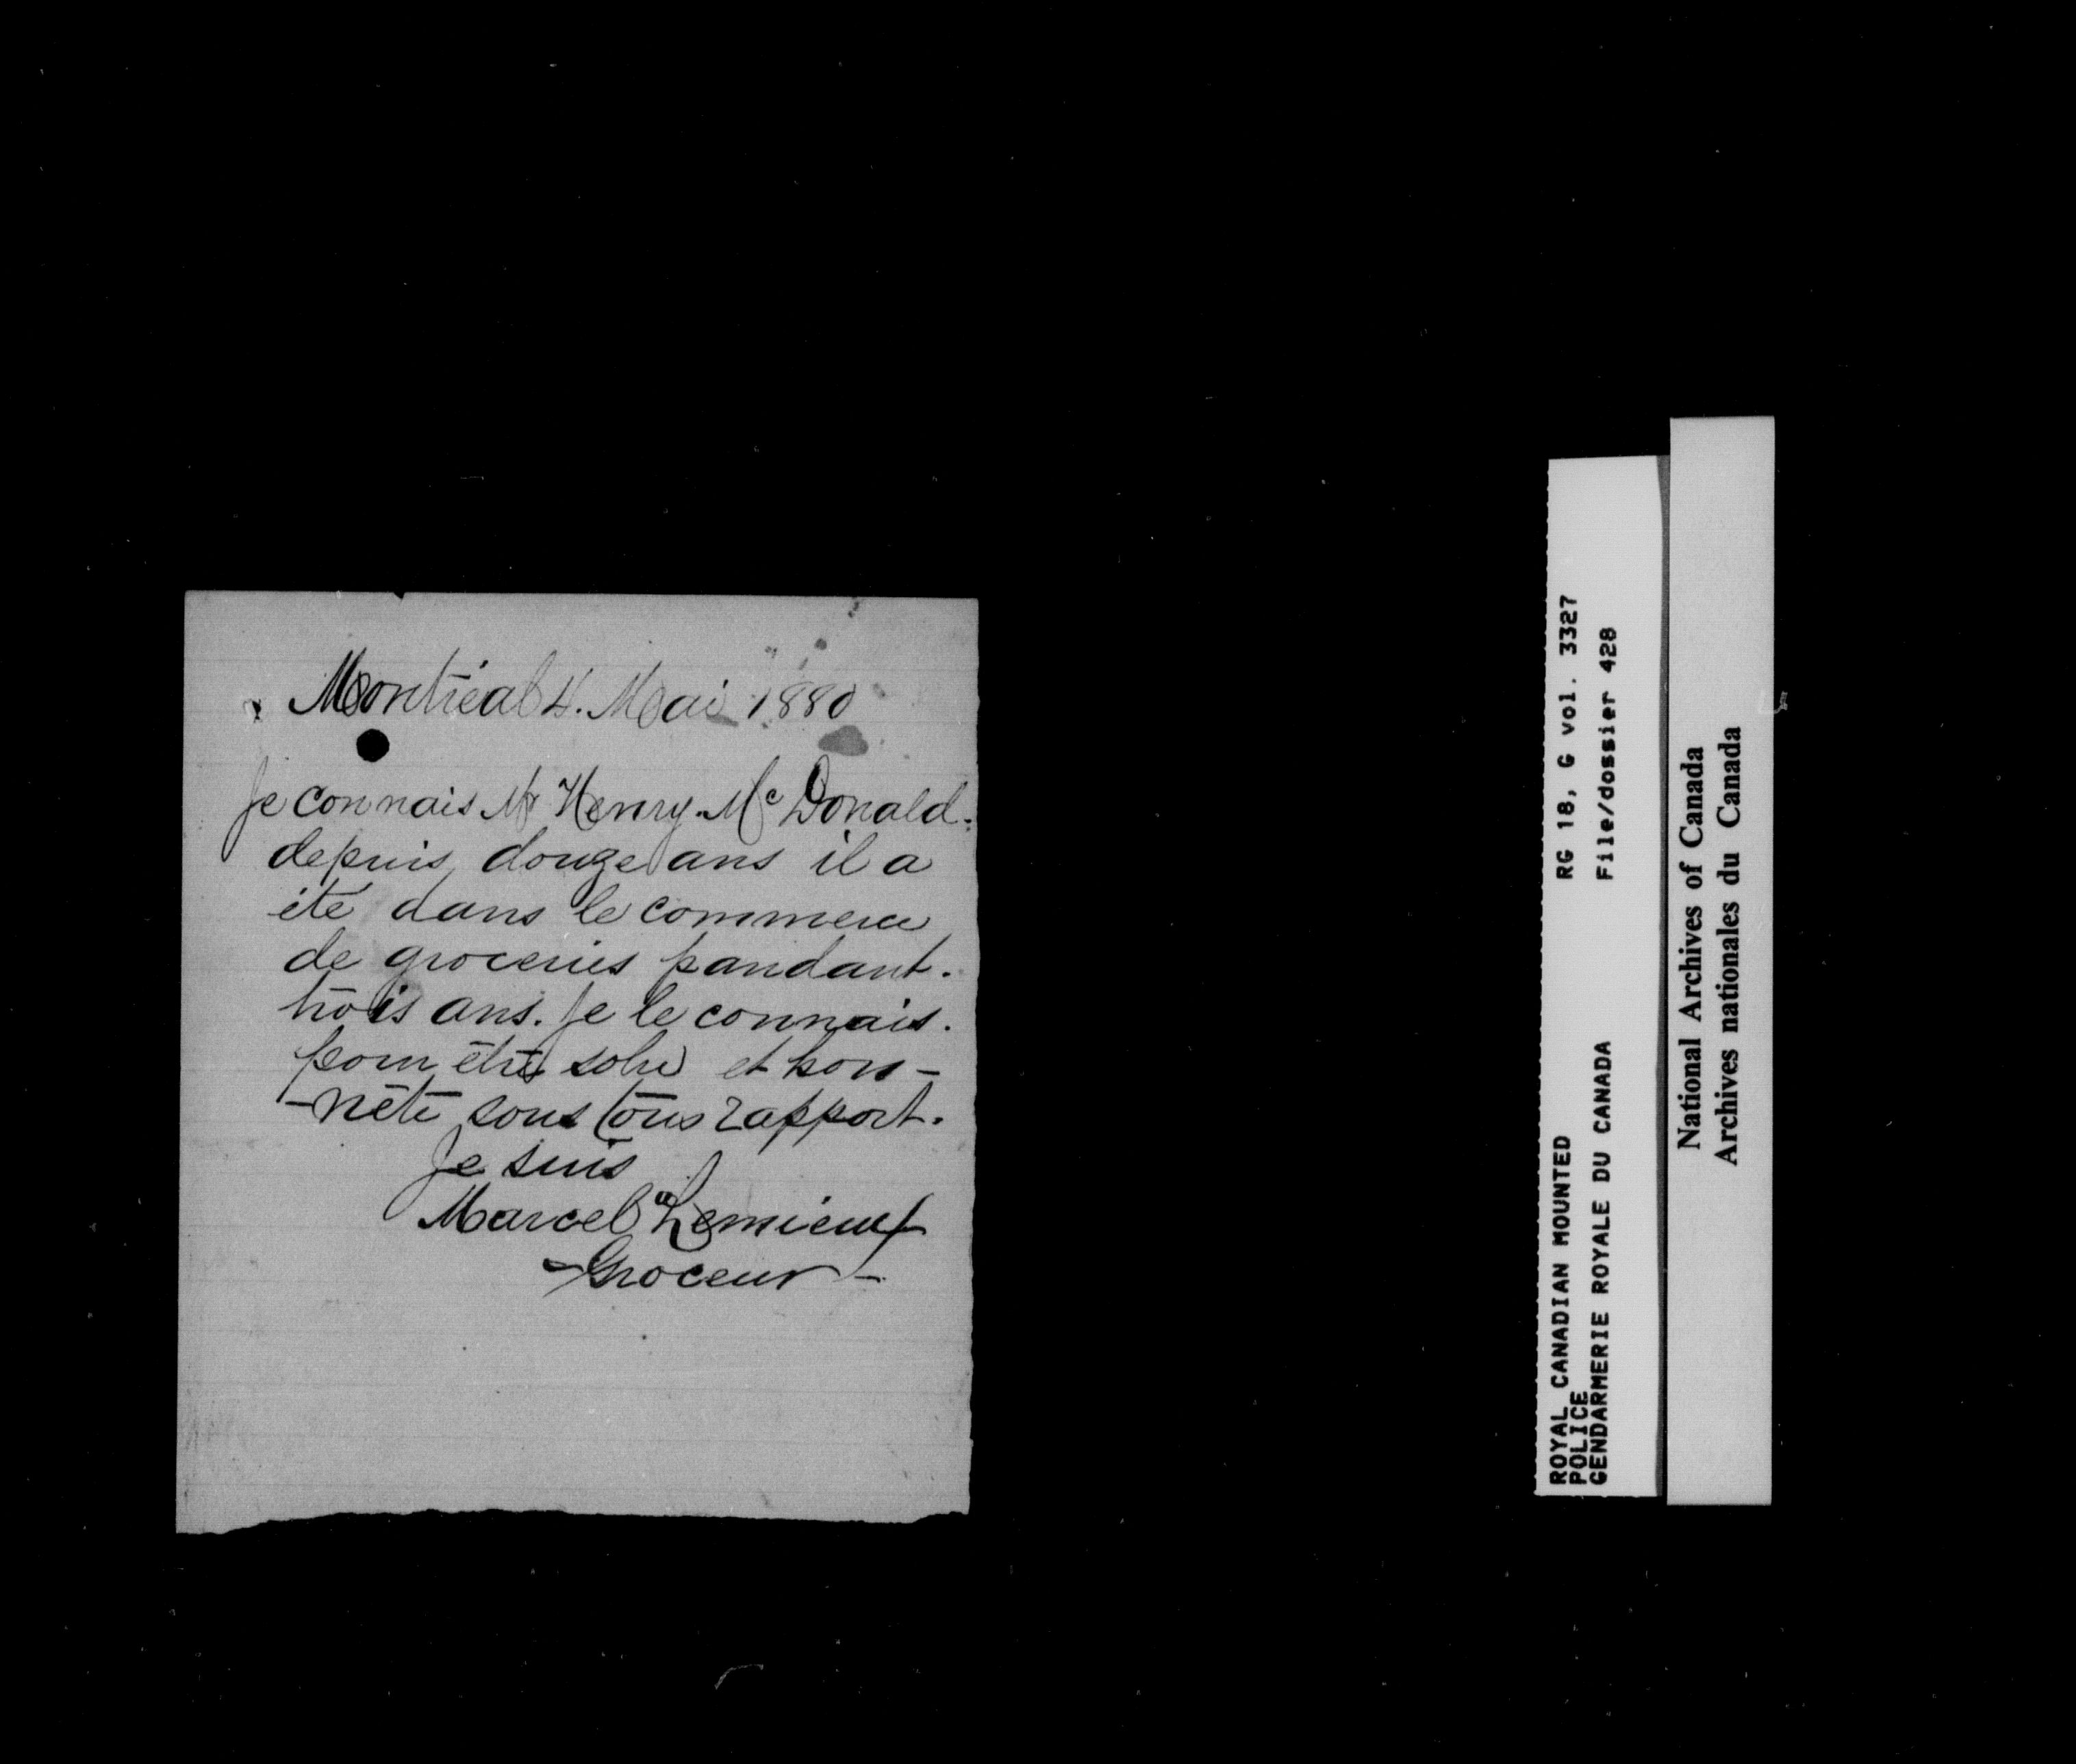 Montréal 4. Mai 1880
Je connais Mr Henry Mc Donald.
depuis douze ans il a
été dans le commerce
de groceries pandant.
trois ans. Je le connais.
pour être sobre et hon-
-nête sous tous rapport.
Je suis
Marcel Lemieux
- Groceur -
ROYAL CANADIAN MOUNTED
POLICE
GENDARMERIE ROYALE DU CANADA
RG 18, G vol. 3327
File/dossier 428
National Archives of Canada
Archives nationales du Canada